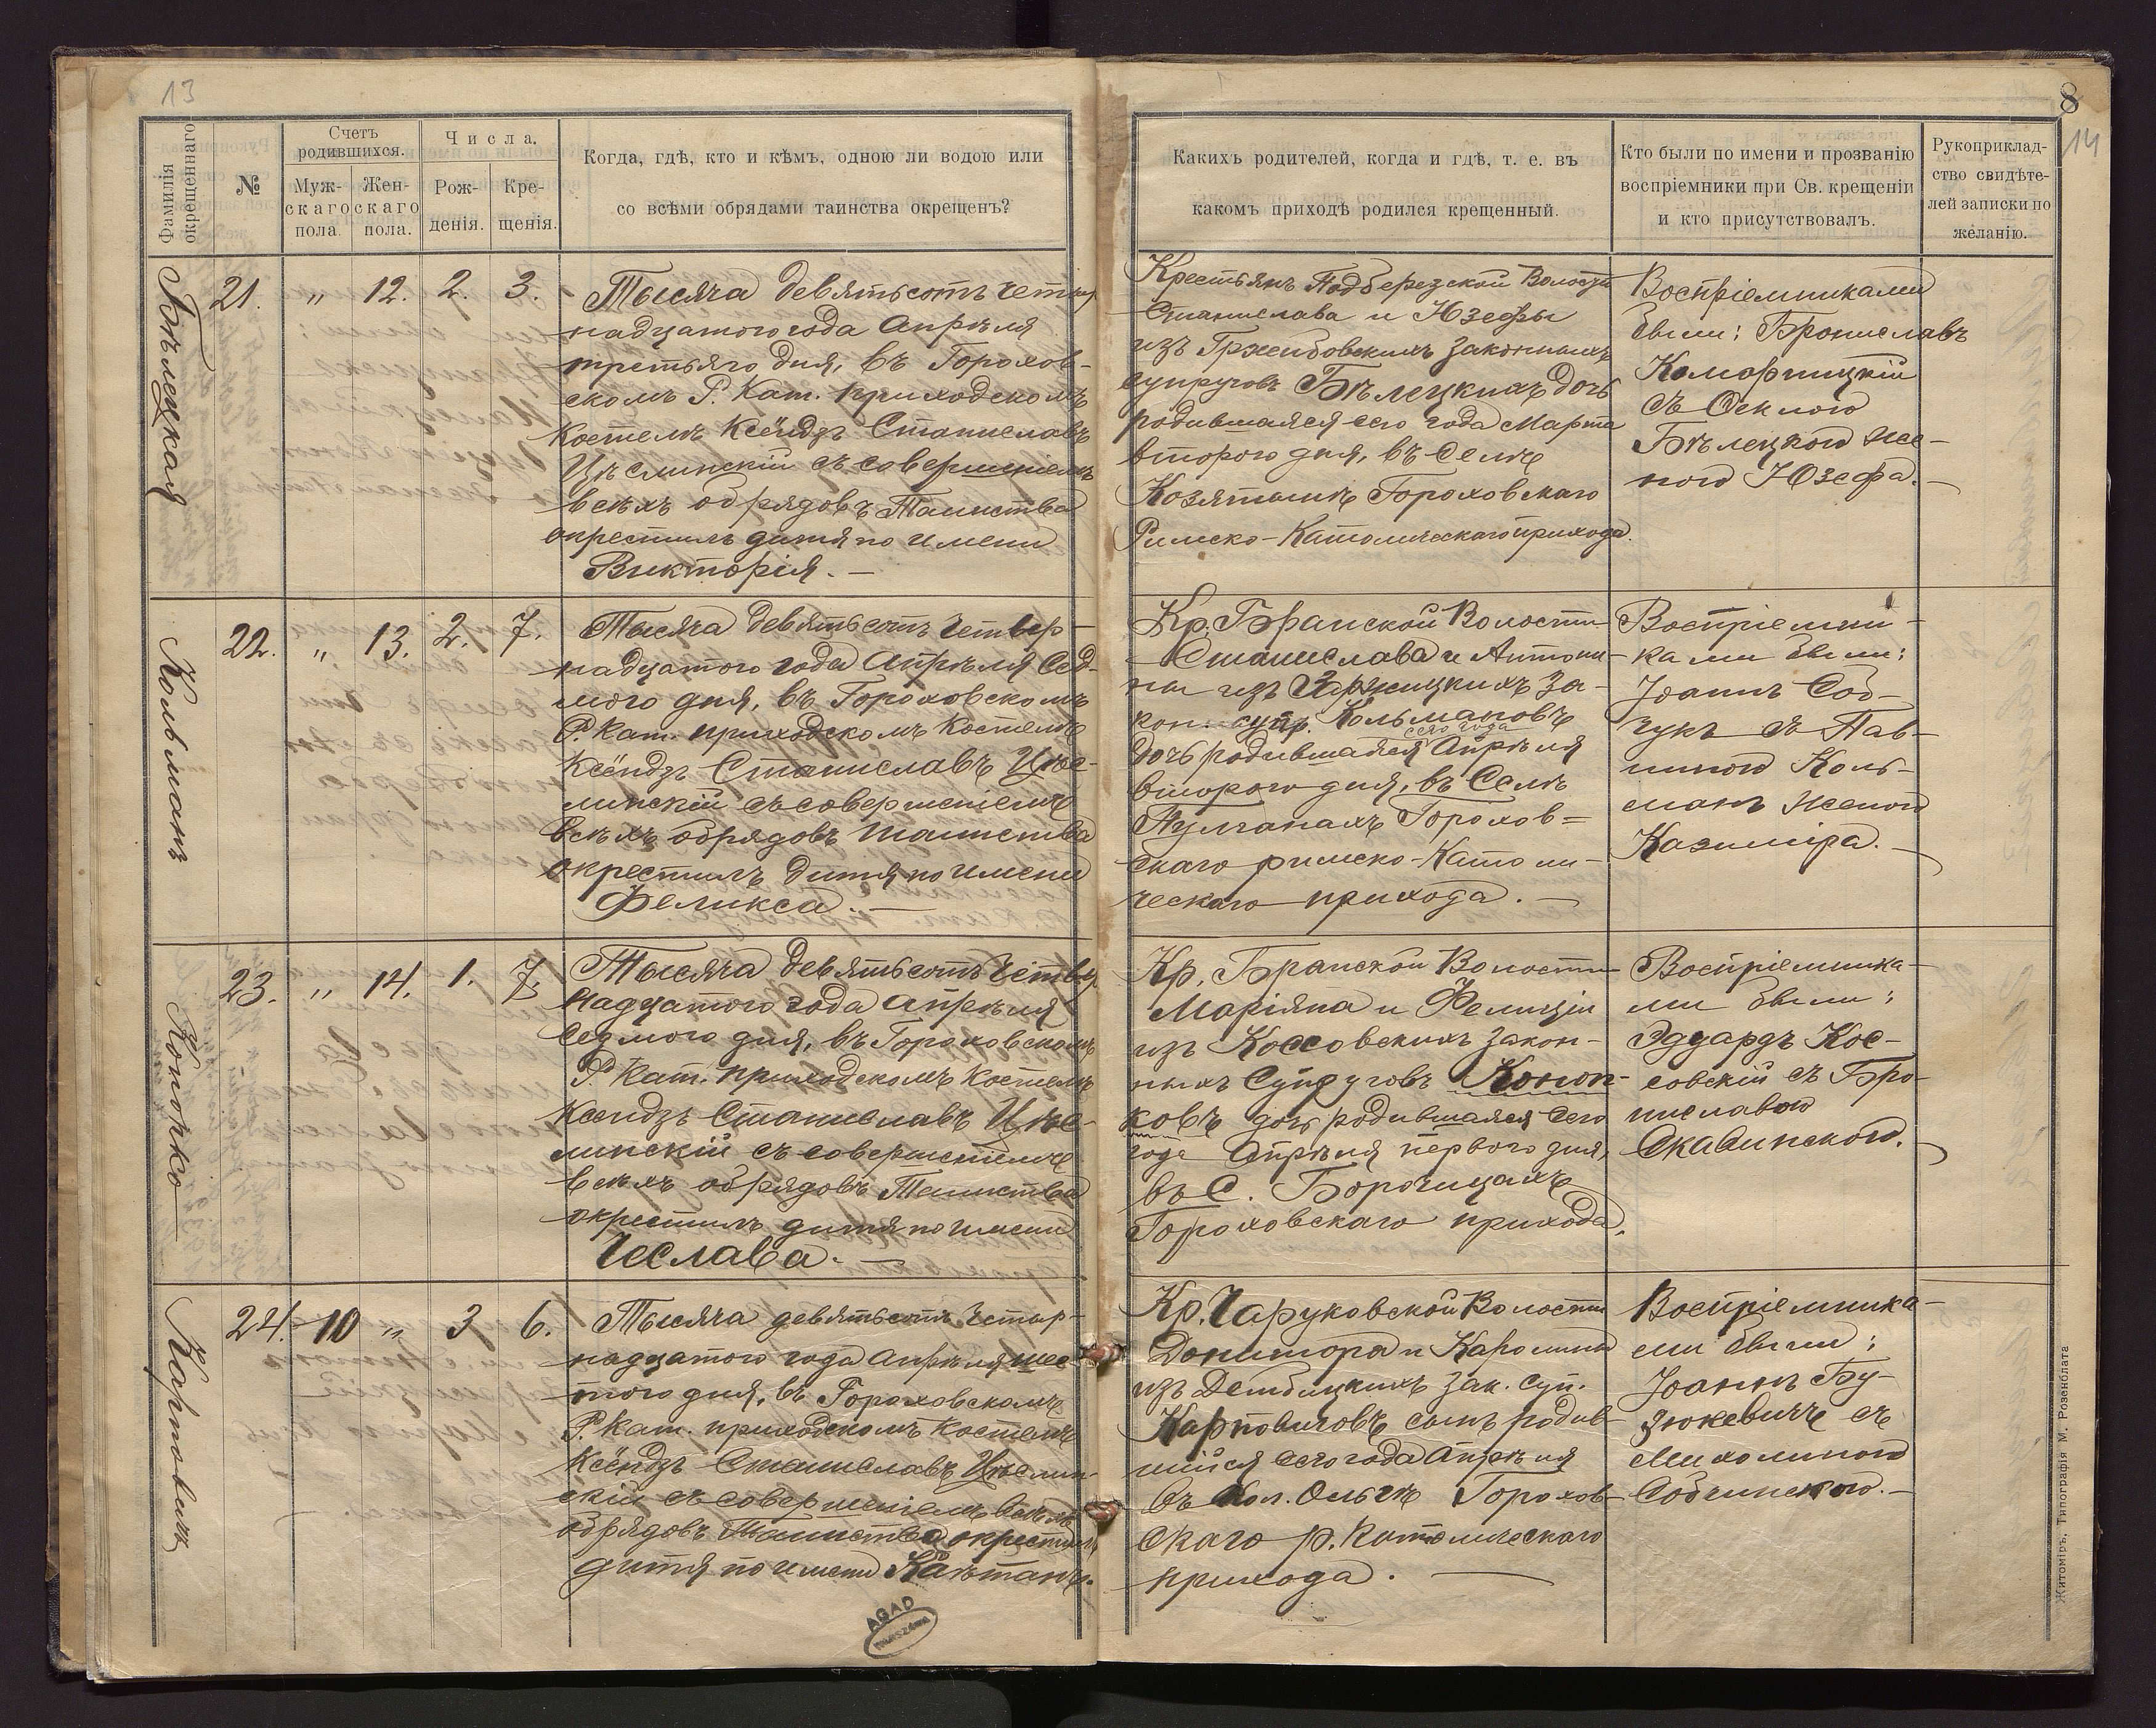 13
8
14
Фамилія окрещеннаго
№
Счетъ родившихся.
Муж-скаго пола.
Жен-скаго пола.
Числа.
Рож-денія.
Кре-щенія.
Когда, гдѣ, кто и кѣмъ, одною ли водою или
со всѣми обрядами таинства окрещенъ?
Какихъ родителей, когда и гдѣ, т. е. въ
какомъ приходѣ родился крещенный.
Кто были по имени и прозванію
воспріемники при Св. крещеніи
и кто присутствовалъ.
Рукоприклад-
ство свидѣте-
лей записки по
желанію.
Бѣлецкая
21. " 12. 2. 3.
Тысяча девятьсотъ четыр
надцатого года Апрѣля
третьяго дня, въ Горохов-
скомъ Р. Кат. приходскомъ
костелѣ Ксёндзъ Станиславъ
Цѣслинскій съ совершеніемъ
всѣхъ обрядовъ Таинства
окрестилъ дитя по имени
Викторія. —
Крестьянъ Подберезской Волости
Станислава и Юзефы
изъ Гржибовскихъ законныхъ
супруговъ Бѣлецкихъ дочь
родившаяся сего года Марта
второго дня, въ Селѣ
Козятинѣ Гороховскаго
Римско-Католическаго прихода.
Воспріемниками
были: Брониславъ
Коморницкій
съ Феклою
Бѣлецкою же-
ною Юзефа. —
Кольманъ
22. " 13. 2. 7.
Тысяча девятьсотъ четыр-
надцатого года Апрѣля Сед-
мого дня, въ Гороховскомъ
Р. Кат. приходскомъ костелѣ
Ксёндзъ Станиславъ Цѣс-
линскій съ совершеніемъ
всѣхъ обрядовъ таинства
окрестилъ дитя по имени
Феликса. —
Кр. Бранской Волости
Станислава и Антони-
ны изъ Заржицкихъ за-
кон. супр. Кольмановъ
сего года
дочь родившаяся Апрѣля
второго дня, въ Селѣ
Пулганахъ Горохов-
скаго римско-Католи-
ческаго прихода. —
Воспріемни-
ками были:
Іоаннъ Соб-
чукъ съ Пав-
линою Коль-
манъ женою
Казиміра. —
Конопко
23. " 14. 1. 7.
Тысяча девятьсотъ четыр
надцатого года Апрѣля
Седмого дня, въ Гороховскомъ
Р. Кат. приходскомъ костелѣ
Ксендзъ Станиславъ Цѣс-
линскій съ совершеніемъ
всѣхъ обрядовъ Таинства
окрестилъ дитя по имени
Чеслава. —
Кр. Бранской Волости
Маріяна и Фелиціи
изъ Коссовскихъ закон-
ныхъ Супруговъ Коноп-
ковъ дочь родившаяся сего
года Апрѣля первого дня,
въ С. Борочицахъ
Гороховскаго прихода.
Воспріемника-
ми были:
Эдуардъ Кос-
совскій съ Бро-
ниславою
Скавинскою.
Карповичъ
24. 10 " 3 6.
Тысяча девятьсотъ четыр-
надцатого года Апрѣля шес-
того дня, въ Гороховскомъ
Р. Кат. приходскомъ костелѣ
Ксёндзъ Станиславъ Цѣслин-
скій съ совершеніемъ всѣхъ
обрядовъ Таинства окрестилъ
дитя по имени Каэтанъ.
Кр. Чаруковской Волости
и Каролины
изъ Дембицкихъ зак. суп.
Карповичовъ сынъ родив-
шійся сего года Апрѣля
въ Кол. Ольгѣ Горохов-
скаго р. Католическаго
прихода. —
Воспріемника-
ми были:
Іоаннъ Бу-
зюкевичъ съ
Михалиною
Собчинскою. —
AGAD
WARSZAWA
Житоміръ, Типографія М. Розенблата